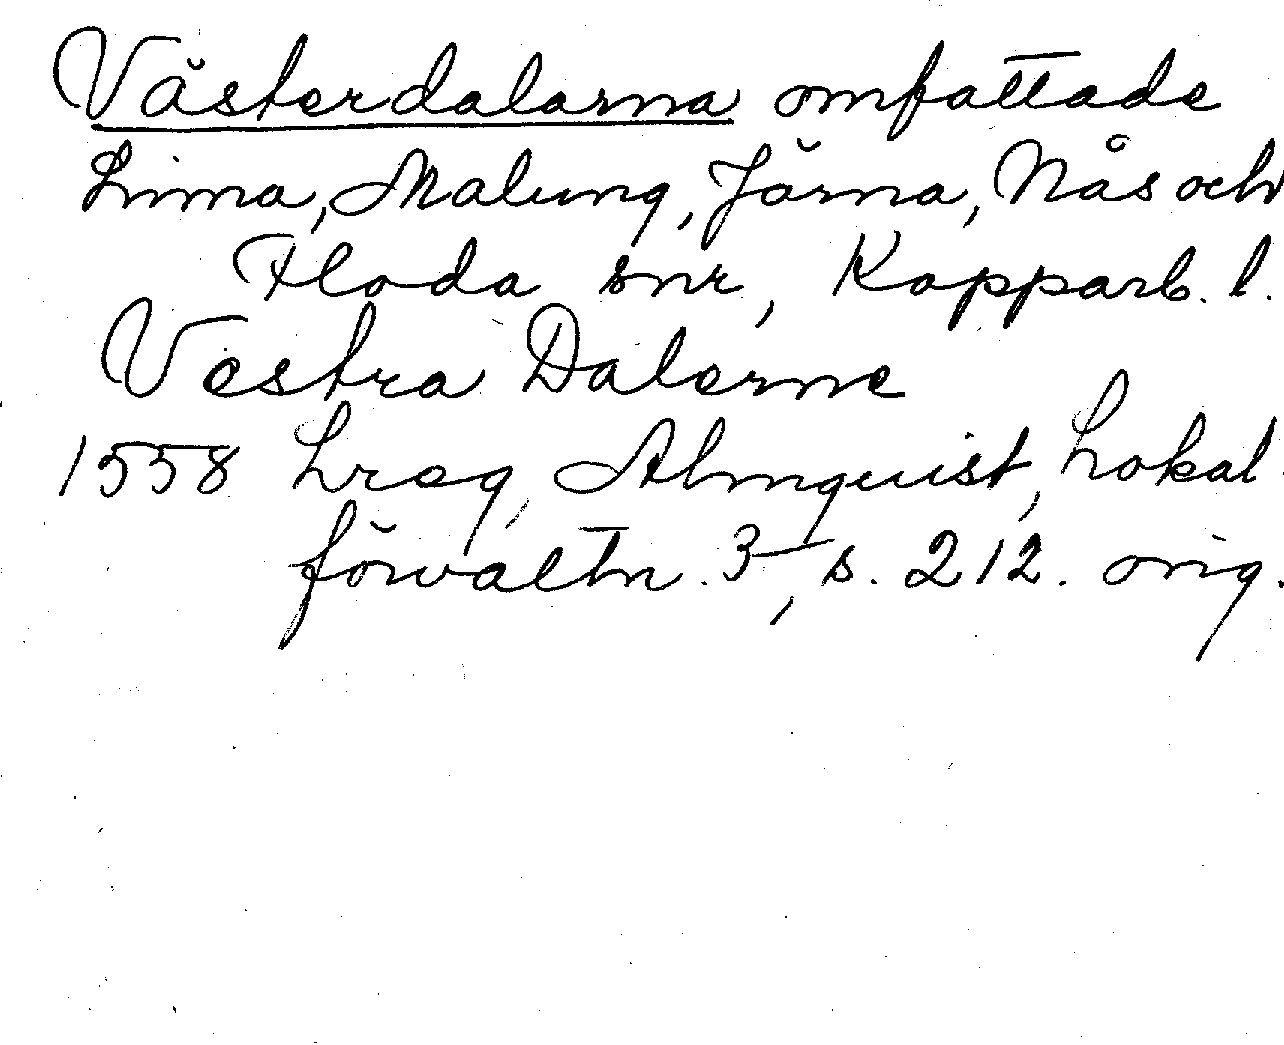 Västerdalarna omfattade
Lima, Malung, Järna, Nås och
Floda snr, Kopparb. l.
Vestra Dalerne
1558 Lreg, Almquist, Lokal
förvaltn. 3, s. 212. orig.